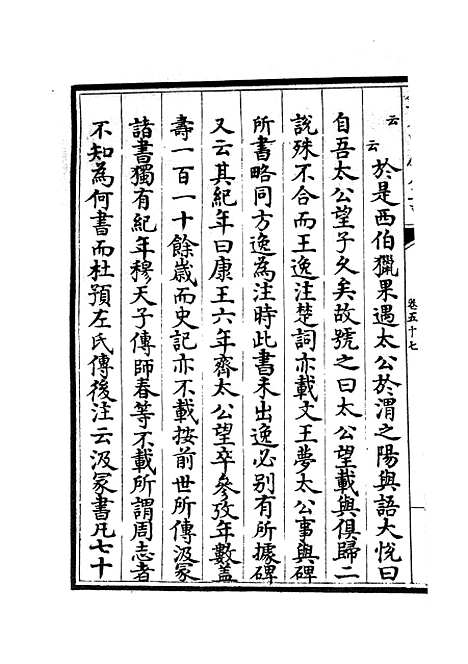 云
云
於是西伯獵果遇太公於渭之陽與語大悅曰
自吾太公望子久矣故號之曰太公望載與俱歸二
說殊不合而王逸注楚詞亦載文王夢太公事與碑
所書略同方逸為注時此書未出逸必别有所據碑
又云其紀年曰康王六年齊太公望卒參攷年數蓋
壽一百一十餘歲而史記亦不載按前世所傳汲冢
諸書獨有紀年穆天子傳師春等不載所謂周志者
不知為何書而杜預左氏傳後注云汲冢書凡七十
卷五十七